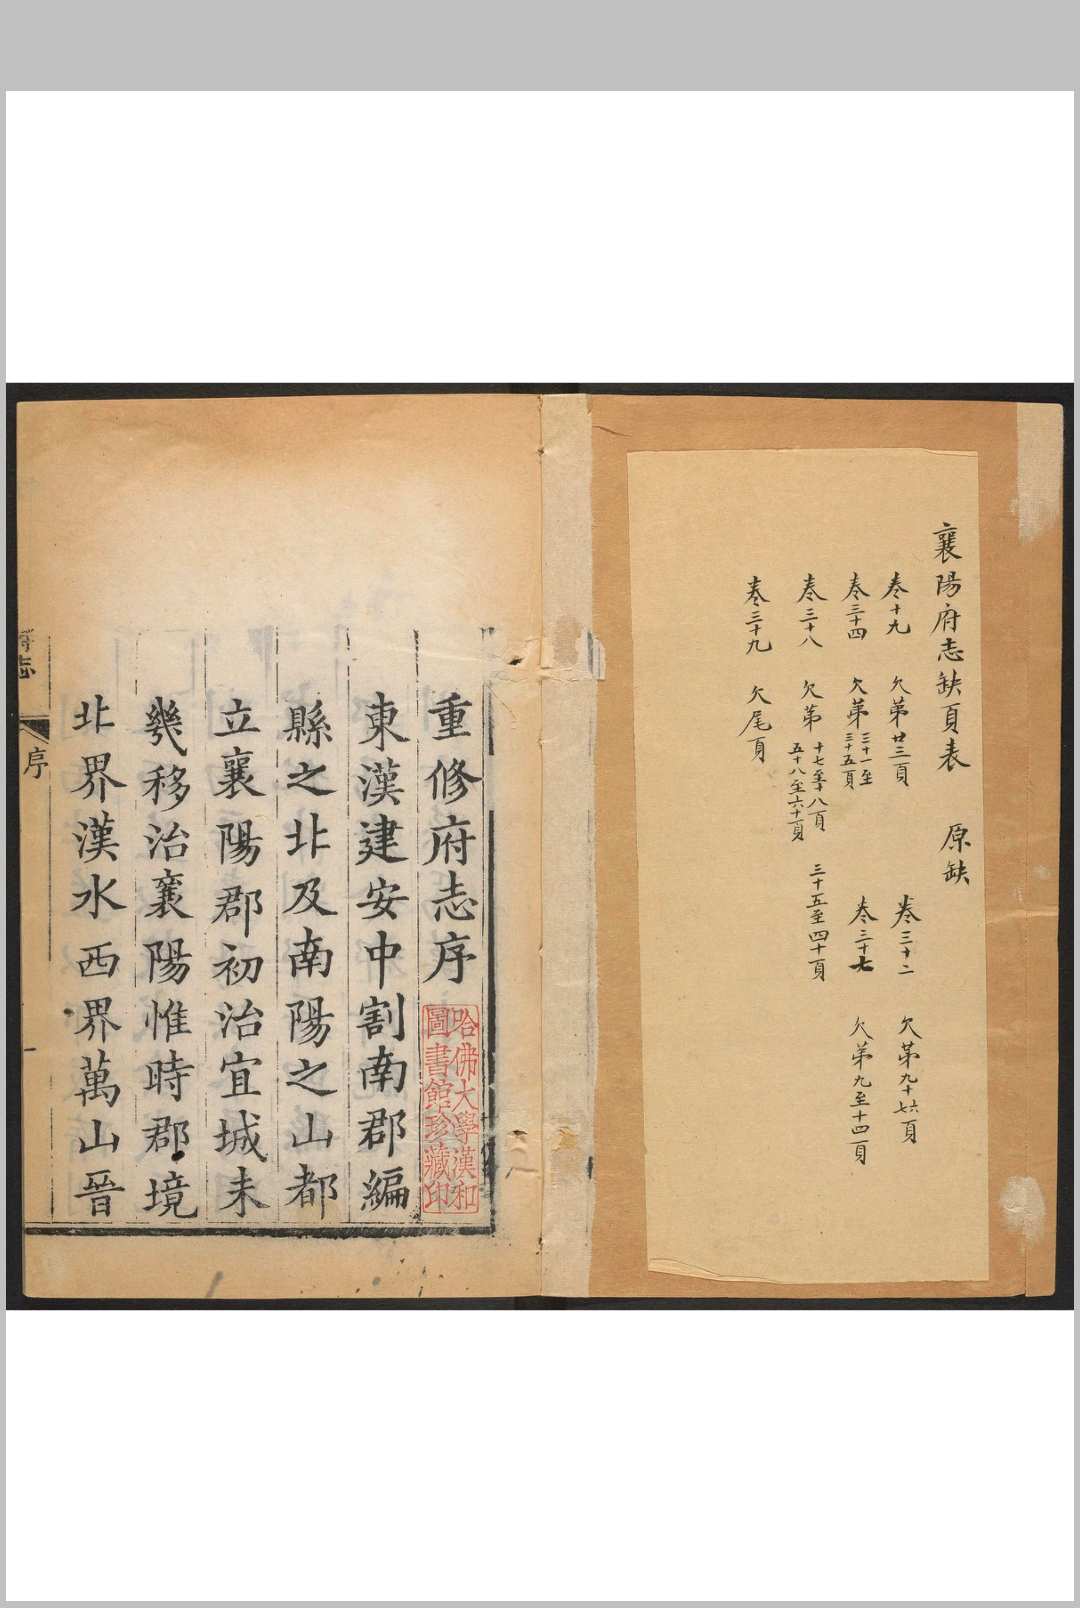 襄陽府志缺頁表 原缺
卷十九 欠第廿三頁 卷三十二 欠第九十六頁
卷三十四 欠第三十一至三十五頁 卷三十七 欠第九至十四頁
卷三十八 欠第十七至十八頁 三十五至四十頁
五十八至六十頁
卷三十九 欠尾頁
重修府志序
哈佛大學漢和
圖書館珍藏印
東漢建安中割南郡編
縣之北及南陽之山都
立襄陽郡初治宜城未
幾移治襄陽惟時郡境
北界漢水西界萬山晉
府志 序